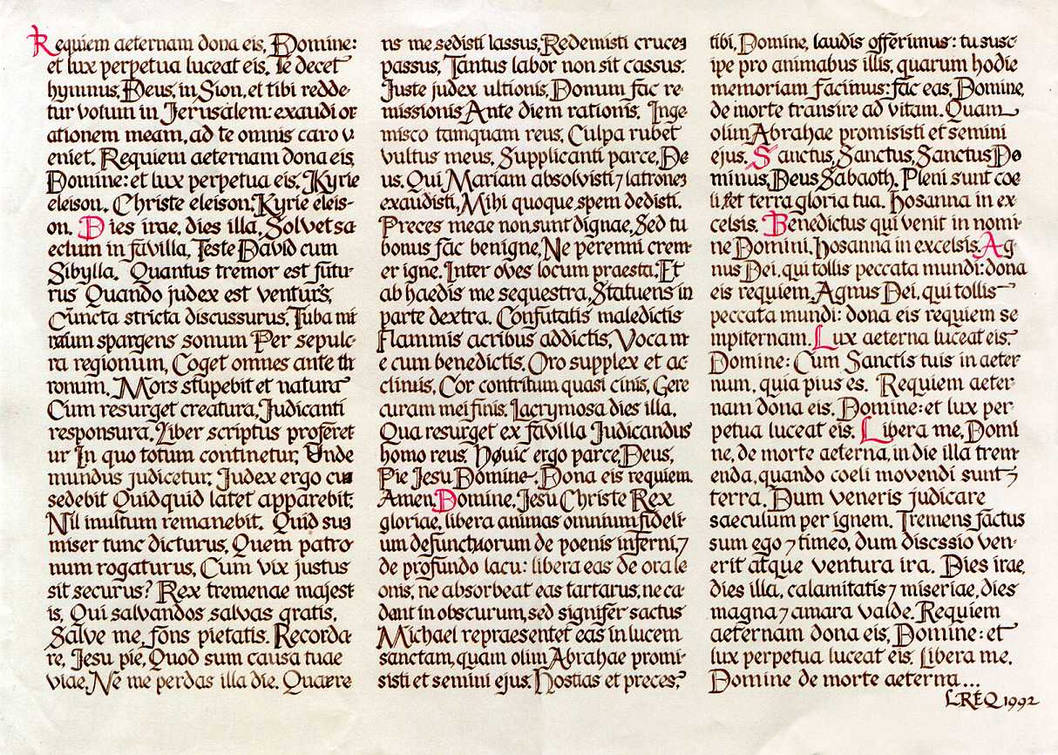 Requiem aeternam dona eis, Domine:
et lux perpetua luceat eis. Te decet
hymnus, Deus, in Sion, et tibi redde-
tur votum in Jerusalem: exaudi or
ationem meam, ad te omnis caro v
eniet. Requiem aeternam dona eis
Domine: et lux perpetua eis. Kyrie
eleison. Christe eleison. Kyrie eleis-
on. Dies irae, dies illa, Solvet sa
eclum in favilla, Teste David cum
Sibylla. Quantus tremor est futu-
rus Quando judex est venturs,
Cuncta stricta discussurus. Tuba mi
rum spargens sonum Per sepulc-
ra regionum, Coget omnes ante th
ronum. Mors stupebit et natura
Cum resurget creatura, Judicanti
responsura. Liber scriptus proferet
ur In quo totum continetur, Unde
mundus judicetur. Judex ergo cum
sedebit Quidquid latet apparebit:
Nil inultum remanebit. Quid sum
miser tunc dicturus, Quem patro
num rogaturus, Cum vix justus
sit securus? Rex tremenae majest
is, Qui salvandos salvas gratis,
Salve me, fons pietatis. Recorda
re, Jesu pie, Quod sum causa tuae
viae, Ne me perdas illa die. Quaere
ns me sedisti lassus, Redemisti cruces
passus, Tantus labor non sit cassus.
Juste judex ultionis, Donum fac re-
missionis Ante diem rationis. Inge
misco tamquam reus, Culpa rubet
vultus meus, Supplicanti parce, De
us. Qui Mariam absolvisti ⁊ latrones
exaudisti, Mihi quoque spem dedisti.
Preces meae non sunt dignae, Sed tu
bonus fac benigne, Ne perenni crem
er igne. Inter oves locum praesta, Et
ab haedis me sequestra, Statuens in
parte dextra. Confutatis maledictis
Flammis acribus addictis, Voca m
e cum benedictis. Oro supplex et ac
clinis, Cor contritum quasi cinis, Gere
curam mei finis. Lacrymosa dies illa,
Qua resurget ex favilla Judicandus
homo reus, Huic ergo parce, Deus,
Pie Jesu Domine. Dona eis requiem.
Amen. Domine, Jesu Christe Rex
gloriae, libera animas omnium fideli-
um defunctorum de poenis inferni, ⁊
de profundo lacu: libera eas de ora le
onis, ne absorbeat eas tartarus, ne ca
dant in obscurum, sed signifer sactus
Michael repraesentet eas in lucem
sanctam, quam olim Abrahae promi-
sisti et semini ejus. Hostias et preces,
tibi, Domine, laudis offerimus: tu susc
ipe pro animabus illis, quarum hodie
memoriam facimus: fac eas, Domine,
de morte transire ad vitam. Quam
olim Abrahae promisisti et semini
ejus. Sanctus, Sanctus, Sanctus Do
minus, Deus Sabaoth. Pleni sunt coe
li et terra gloria tua. Hosanna in ex
celsis. Benedictus qui venit in nomi-
ne Domini, hosanna in excelsis. Ag
nus Dei, qui tollis peccata mundi: dona
eis requiem, Agnus Dei, qui tollis
peccata mundi: dona eis requiem se
mpiternam. Lux aeterna luceat eis,
Domine: Cum Sanctis tuis in aeter
num, quia pius es. Requiem aeter-
nam dona eis, Domine: et lux per
petua luceat eis. Libera me, Domi
ne, de morte aeterna, in die illa trem
enda, quando coeli movendi sunt ⁊
terra. Dum veneris judicare
saeculum per ignem. Tremens factus
sum ego ⁊ timeo, dum discssio ven-
erit atque ventura ira. Dies irae,
dies illa, calamitatis ⁊ miseriae, dies
magna ⁊ amara valde. Requiem
aeternam dona eis, Domine: et
lux perpetua luceat eis. Libera me,
Domine de morte aeterna...
LREQ 1992